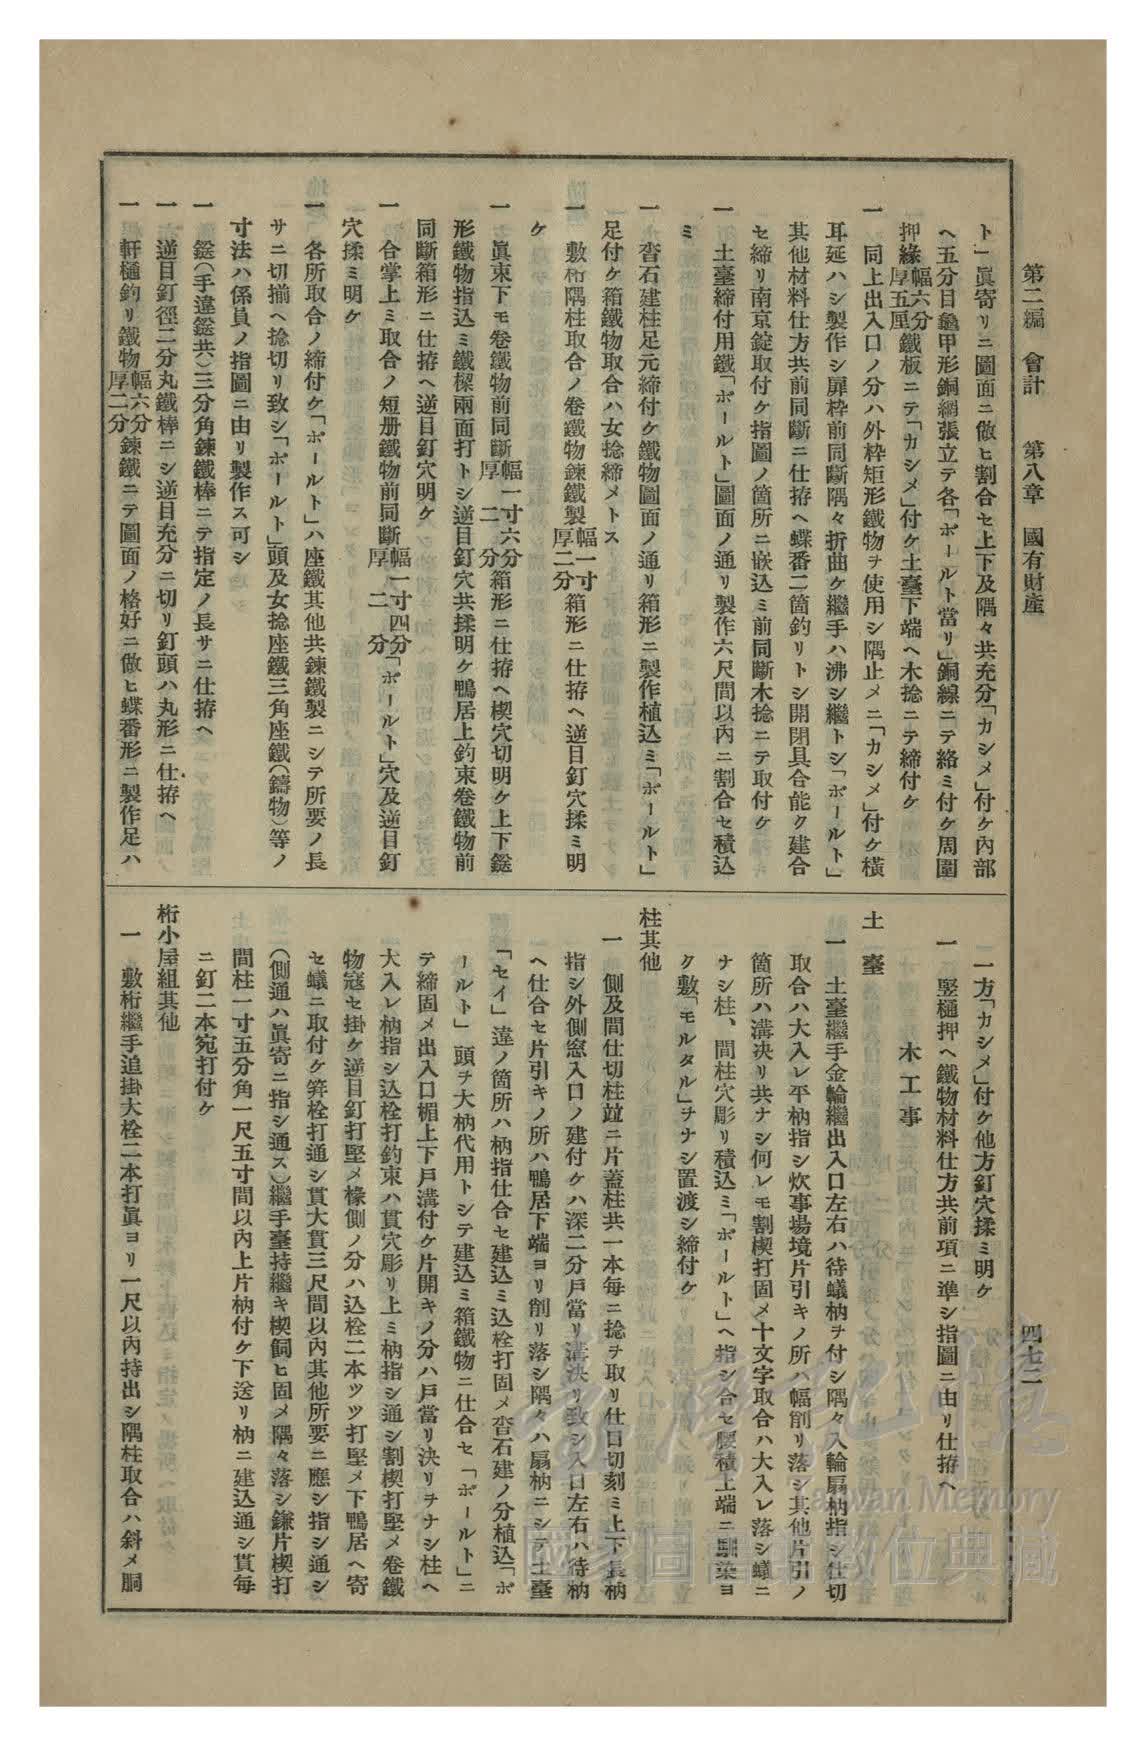 第二編　會計　　第八章　國有財產
四七二
ト」眞寄リニ圖面ニ倣ヒ割合セ上下及隅々共充分「カシメ」付ケ內部
ヘ五分目龜甲形銅網張立テ各「ボールト當リ」銅線ニテ絡ミ付ケ周圍
押緣幅六分厚五厘鐵板ニテ「カシメ」付ケ土臺下端ヘ木捻ニテ締付ケ
一　同上出入口ノ分ハ外枠矩形鐵物ヲ使用シ隅止メニ「カシメ」付ケ橫
耳延ハシ製作シ扉枠前同斷隅々折曲ケ繼手ハ沸シ繼トシ「ボールト」
其他材料仕方共前同斷ニ仕拵ヘ蝶番二箇釣リトシ開閉具合能ク建合
セ締リ南京錠取付ケ指圖ノ箇所ニ嵌込ミ前同斷木捻ニテ取付ケ
一　土臺締付用鐵「ボールト」圖面ノ通リ製作六尺間以內ニ割合セ積込
ミ
一　沓石建柱足元締付ケ鐵物圖面ノ通リ箱形ニ製作植込ミ「ボールト」
足付ケ箱鐵物取合ハ女捻締メトス
一　敷桁隅柱取合ノ卷鐵物鍊鐵製幅一寸厚二分箱形ニ仕拵ヘ逆目釘穴揉ミ明
ケ
一　眞束下モ卷鐵物前同斷幅一寸六分厚二分箱形ニ仕拵ヘ楔穴切明ケ上下鎹
形鐵物指込ミ鐵楔兩面打トシ逆目釘穴共揉明ケ鴨居上釣束卷鐵物前
同斷箱形ニ仕拵ヘ逆目釘穴明ケ
一　合掌上ミ取合ノ短册鐵物前同斷幅一寸四分厚二分「ボールト」穴及逆目釘
穴揉ミ明ケ
一　各所取合ノ締付ケ「ボールト」ハ座鐵其他共鍊鐵製ニシテ所要ノ長
サニ切揃ヘ捻切リ致シ「ボールト」頭及女捻座鐵三角座鐵(鑄物)等ノ
寸法ハ係員ノ指圖ニ由リ製作ス可シ
一　鎹(手違鎹共)三分角鍊鐵棒ニテ指定ノ長サニ仕拵ヘ
一　逆目釘徑二分丸鐵棒ニシ逆目充分ニ切リ釘頭ハ丸形ニ仕拵ヘ
一　軒樋釣リ鐵物幅六分厚二分鍊鐵ニテ圖面ノ格好ニ倣ヒ蝶番形ニ製作足ハ
一方「カシメ」付ケ他方釘穴揉ミ明ケ
一　竪樋押ヘ鐵物材料仕方共前項ニ準シ指圖ニ由リ仕拵ヘ
木工事
土臺
一　土臺繼手金輪繼出入口左右ハ待蟻枘ヲ付シ隅々入輪扇枘指シ仕切
取合ハ大入レ平枘指シ炊事場境片引キノ所ハ幅削リ落シ其他片引ノ
箇所ハ溝決リ共ナシ何レモ割楔打固メ十文字取合ハ大入レ落シ蟻ニ
ナシ柱、間柱穴彫リ積込ミ「ボールト」ヘ指シ合セ腰積上端ニ馴染ヨ
ク敷「モルタル」ヲナシ置渡シ締付ケ
柱其他
一　側及間仕切柱竝ニ片蓋柱共一本每ニ捻ヲ取リ仕口切刻ミ上下長枘
指シ外側窓入口ノ建付ケハ深二分戶當リ溝決リ致シ入口左右ハ待枘
ヘ仕合セ片引キノ所ハ鴨居下端ヨリ削リ落シ隅々ハ扇枘ニシテ土臺
「セイ」違ノ箇所ハ枘指仕合セ建込ミ込栓打固メ沓石建ノ分植込「ボ
ールト」頭ヲ大枘代用トシテ建込ミ箱鐵物ニ仕合セ「ボールト」ニ
テ締固メ出入口楣上下戶溝付ケ片開キノ分ハ戶當リ決リヲナシ柱ヘ
大入レ枘指シ込栓打釣束ハ貫穴彫リ上ミ枘指シ通シ割楔打堅メ卷鐵
物冠セ掛ケ逆目釘打堅メ椽側ノ分ハ込栓二本ツツ打堅メ下鴨居ヘ寄
セ蟻ニ取付ケ筓栓打通シ貫大貫三尺間以內其他所要ニ應シ指シ通シ
(側通ハ眞寄ニ指シ通ス)繼手臺持繼キ楔飼ヒ固メ隅々落シ鎌片楔打
間柱一寸五分角一尺五寸間以內上片枘付ケ下送リ枘ニ建込通シ貫每
ニ釘二本宛打付ケ
桁小屋組其他
一　敷桁繼手追掛大栓二本打眞ヨリ一尺以內持出シ隅柱取合ハ斜メ胴
臺灣記憶
Taiwan Memory
國家圖書館數位典藏